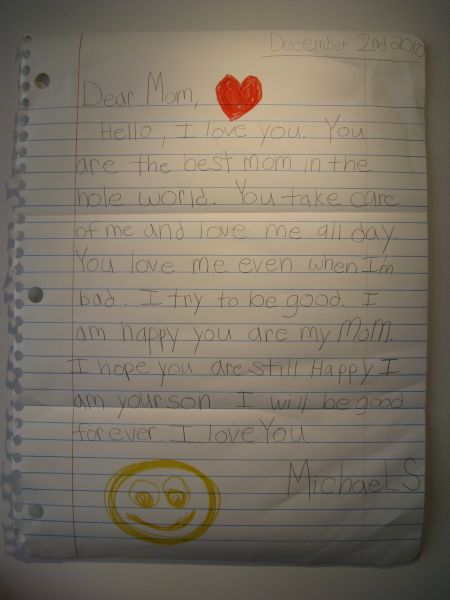 December 2nd 2010
Dear Mom,
Hello, I love you. You
are the best mom in the
hole world. You take care
of me and love me all day.
You love me even when I'm
bad. I try to be good. I
am happy you are my Mom.
I hope you are still Happy I
am your son I will be good
forever. I love You.
Michael S